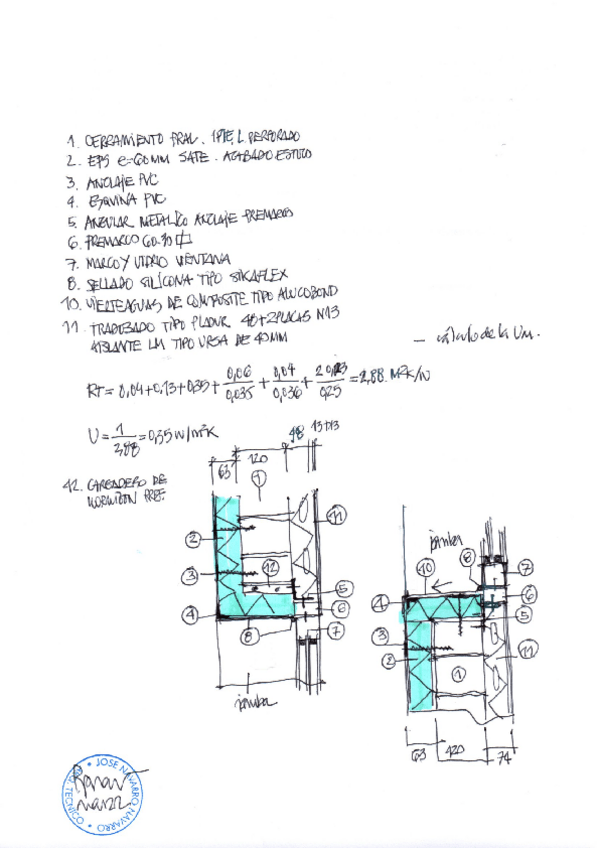 1. CERRAMIENTO PRAL. 1PIE L. PERFORADO
2. EPS e=60MM SATE. ACABADO ESTUCO
3. ANCLAJE PVC
4. ESQUINA PVC
5. ANGULAR METALICO ANCLAJE PREMARCO
6. PREMARCO 60.30
7. MARCO Y VIDRIO VENTANA
8. SELLADO SILICONA TIPO SIKAFLEX
10. VIERTEAGUAS DE COMPOSITE TIPO ALUCOBOND
11. TRASDOSADO TIPO PLADUR 48+2PLACAS N13
AISLANTE LM TIPO URSA DE 40MM
— cálculo de la Um.
RT= 0,04+0,13+0,35+ 0,06/0,035 + 0,04/0,036 + 2 0,013/0,25 =2,88 M²K/W
U= 1/2,88 =0,35 W/m²K
12. CARGADERO DE
HORMIGÓN PREF.
63 120 48 13+13
1
11
2
3
12
5
6
4
8
7
jamba
jamba
8
10
7
6
4
5
3
2
1
11
63 120 74
JOSE NAVARRO NAVARRO
ARQ. TECNICO